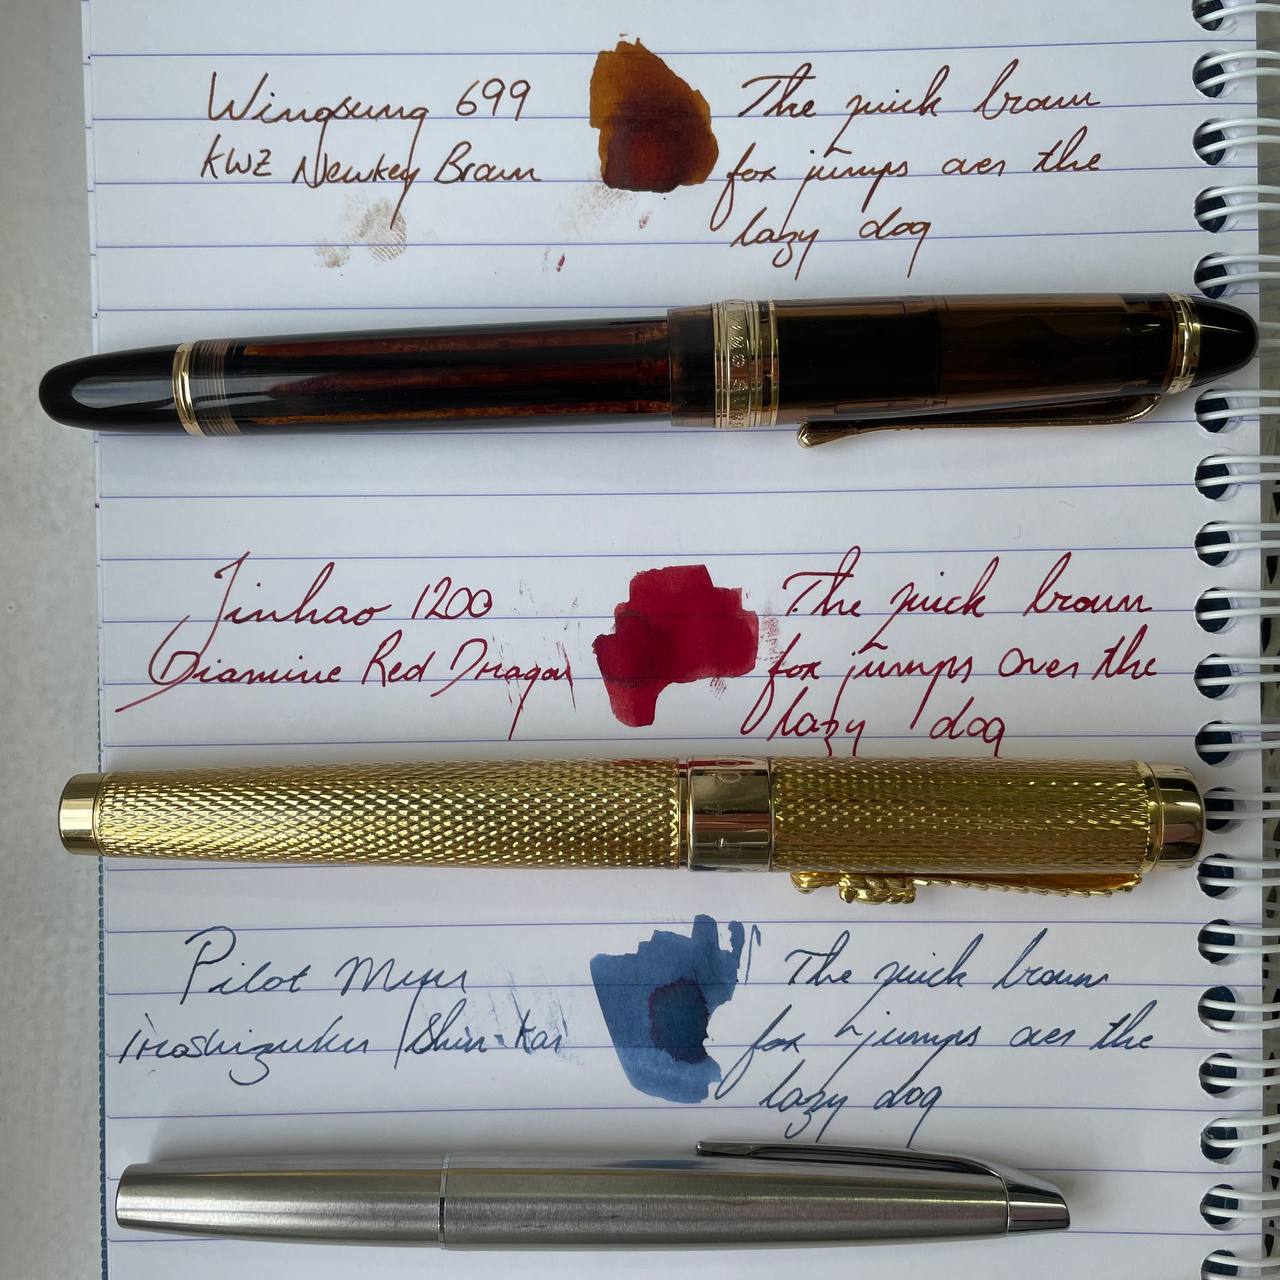 Wingsung 699
KWZ Newkey Brown
The quick brown
fox jumps over the
lazy dog
Jinhao 1200
Diamine Red Dragon
The quick brown
fox jumps over the
lazy dog
Pilot Myu
Iroshizuku Shin-kai
The quick brown
fox jumps over the
lazy dog